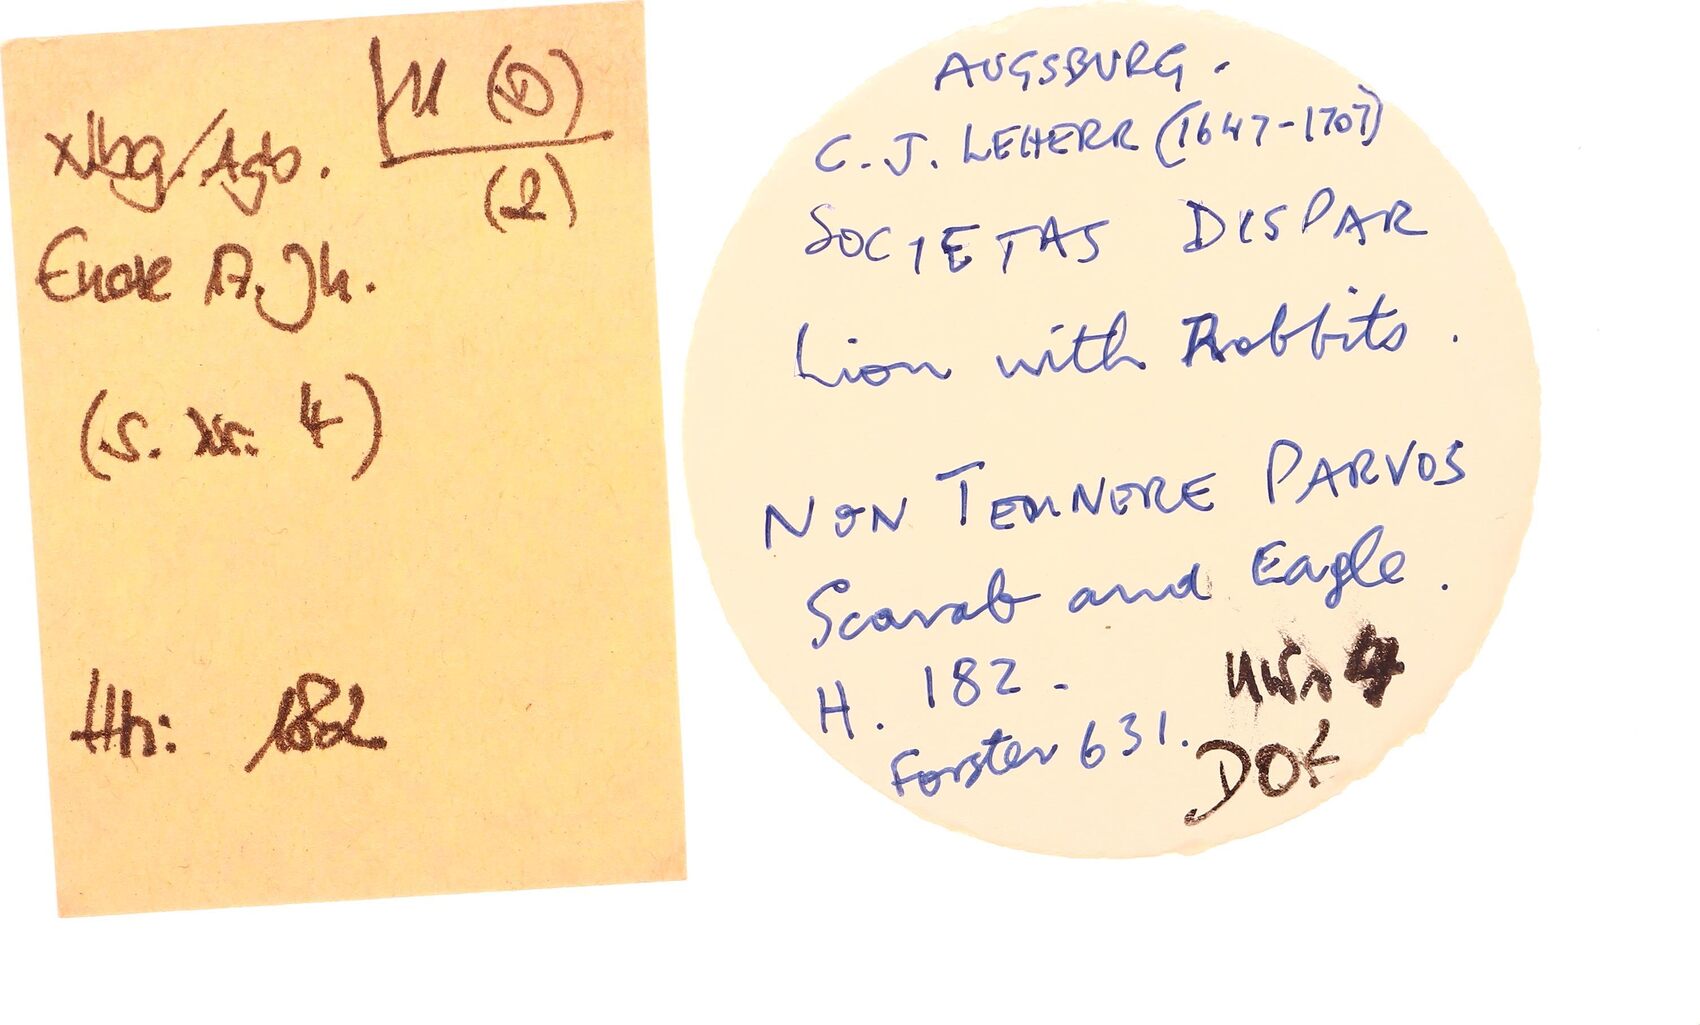 (D)
(2)
Ende 17. Jh.
(S. Nr. 4)
Hh: 182
AUGSBURG.
C. J. LEHERR (1647-1707)
SOCIETAS DISPAR
Lion with Rabbits.
NON TEMNERE PARVOS
Scarab and Eagle.
H. 182.
Forster 631.
DOK